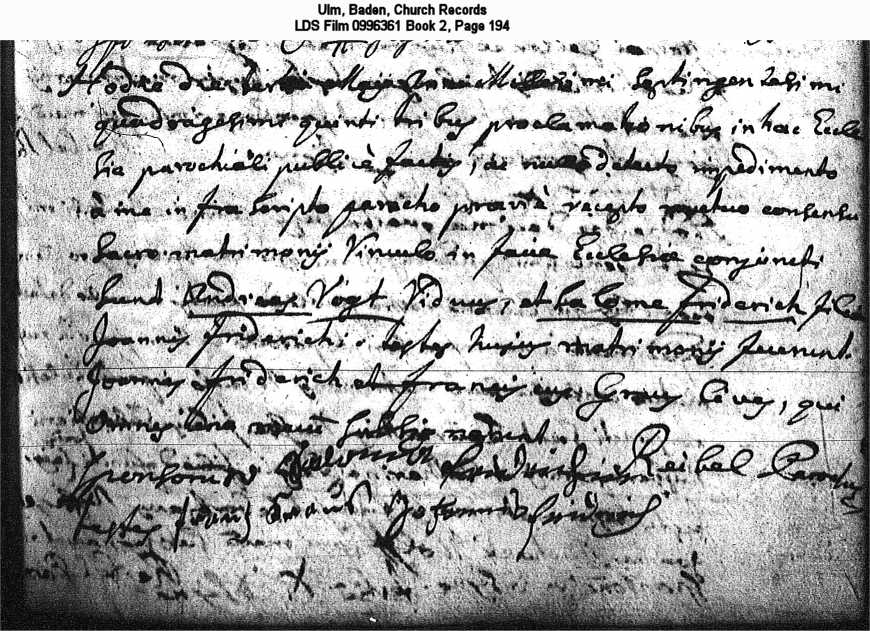 Ulm, Baden, Church Records
LDS Film 0996361 Book 2, Page 194
Hodie die tertia Maji Anni Millesimi Septingentesimi
quadragesimi quinti tribus proclamationibus in hac Eccle
sia parochiali publicè factis, ac nullo detecto impedimento
à me infra scripto parocho praeviè recepto mutuo consensu
Sacro matrimonij Vinculo in facie Ecclesiae conjuncti
Sunt Andreas Vogt Viduus, et Salome Friderich filia
Joannis Friderich. testes hujus matrimonij fuerunt.
Joannes Friderich et Franciscus Graus cives, qui
omnes una mecum Subsignarunt.
Sponsorum Reibel Parochus
testes Johannes Fridrich